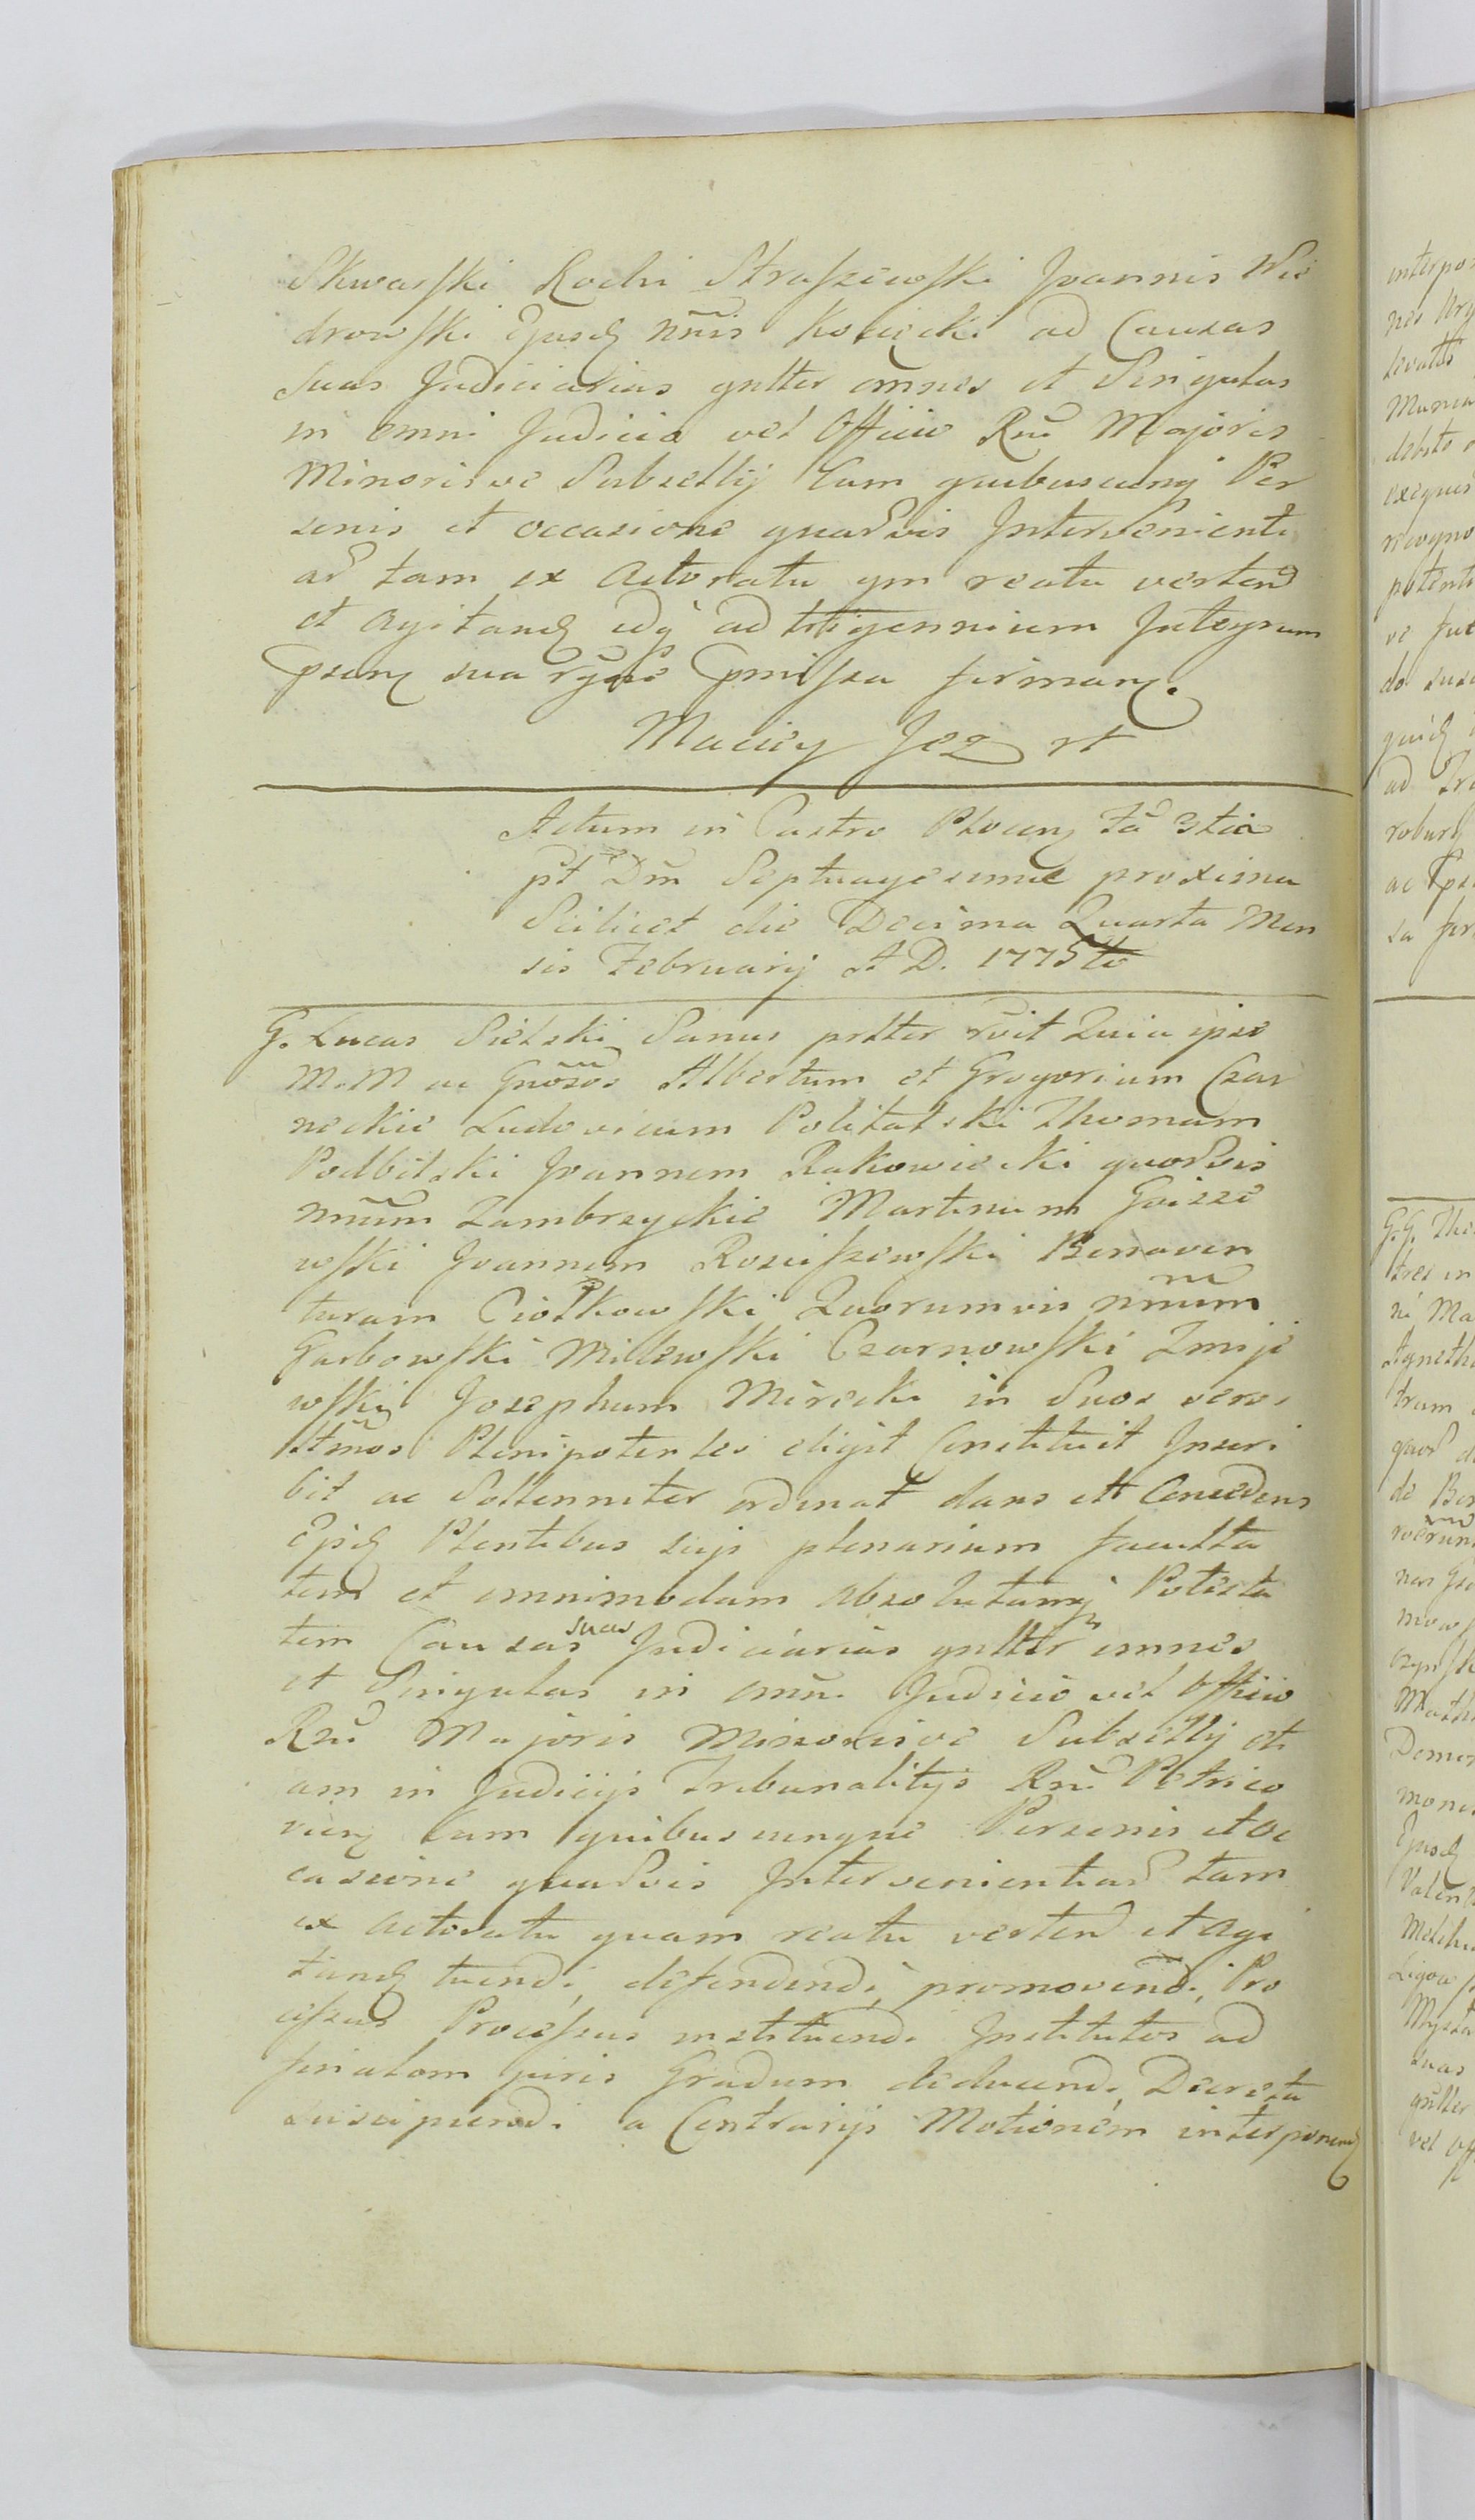 Skwarski Rochi Straszewski Joannis Wio
drowski Ejusd nnis Kosiecki ad Causas
suas Judiciarias gnlter omnes et Singulas
in omni Judicio vel Officio Rni Majoris
Minorisve Subsellij Cum quibuscunq Per
sonis et occasione quadvis Intervenienti
ad tam ex Actoratu qm reatu verten
et agitand idq ad triennium Integrum
pser sua premissa firman.
Maciey Jez
Actum in Castro Plocen Fa 3tia
pt Dm Septuagesimae proxima
Scilicet die Decima Quarta Men
sis February A D. 1775to
G. Lucas Sielski Sanus prlter rvit Quia ipse
M. M ac Gnosos Albertum et Gregorium Czar
neckie Ludovicum Politalski Thomam
Podbilski Joannem Rakowiecki quosvis
nnum Zambrzyckie Martinum Goisze
wski Joannem Rosciszewski Bonaven
turam Ciołkowski Quorumvis nnum
Garbowski Milewski Czarnowski Zmije
wski Josephum Mirecki in Suos veros
ltmos Plenipotentes eligit Constituit Inscri
bit ac Sollenniter ordinat dans et Concedens
Ejsd Plentibus suis plenariam faculta
tem et omnimodam absolutamq Potesta
tem Causas suas Judiciarias gnlter omnes
et Singulas in omni Judicio vel Officio
Rni Majoris Minorisve Subsellij eti
am in Judicijs Tribunalitijs Rni Petrico
vien Cum quibuscunque Personis et oc
casione quadvis Intervenientiad tam
ex actoratu quam reatu verten et agi
tand tuendi, defendendi, promovendi, Pro
cessus Processus instituendi Institutos ad
finalem juris Gradum deducendi, Decreta
suscipiendi a Contrarijs Motionem interponend